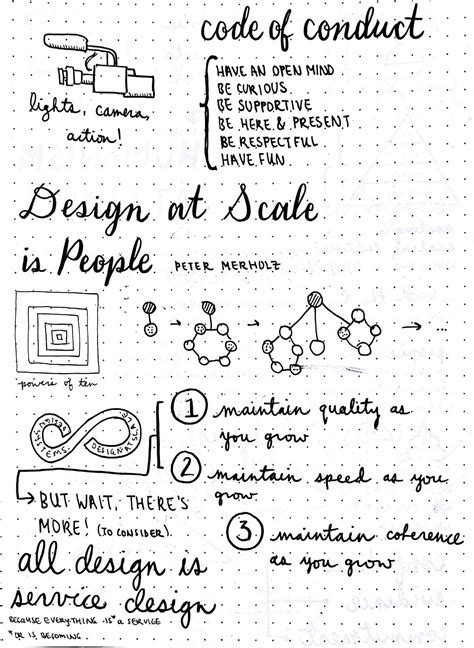 code of conduct
HAVE AN OPEN MIND.
BE CURIOUS.
BE SUPPORTIVE
BE HERE & PRESENT
BE RESPECTFUL
HAVE FUN.
lights, camera,
action!
Design at Scale
is People PETER MERHOLZ
powers of ten
DESIGN SYSTEMS.
DESIGN AT SCALE
1 maintain quality as
you grow
2 maintain speed as you
grow
BUT WAIT, THERE'S
MORE! (TO CONSIDER).
3 maintain coherence
as you grow
all design is
service design
BECAUSE EVERYTHING IS* A SERVICE
*OR IS BECOMING